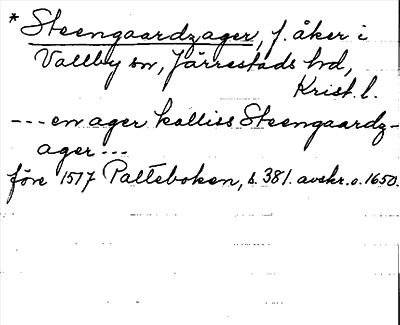 * Steengaardzager, f. åker i
Vallby sn, Järrestads hd,
Krist. l.
--- en ager kalliss Steengaardz-
ager ---
före 1517 Palteboken, s. 381. avskr. o. 1650.